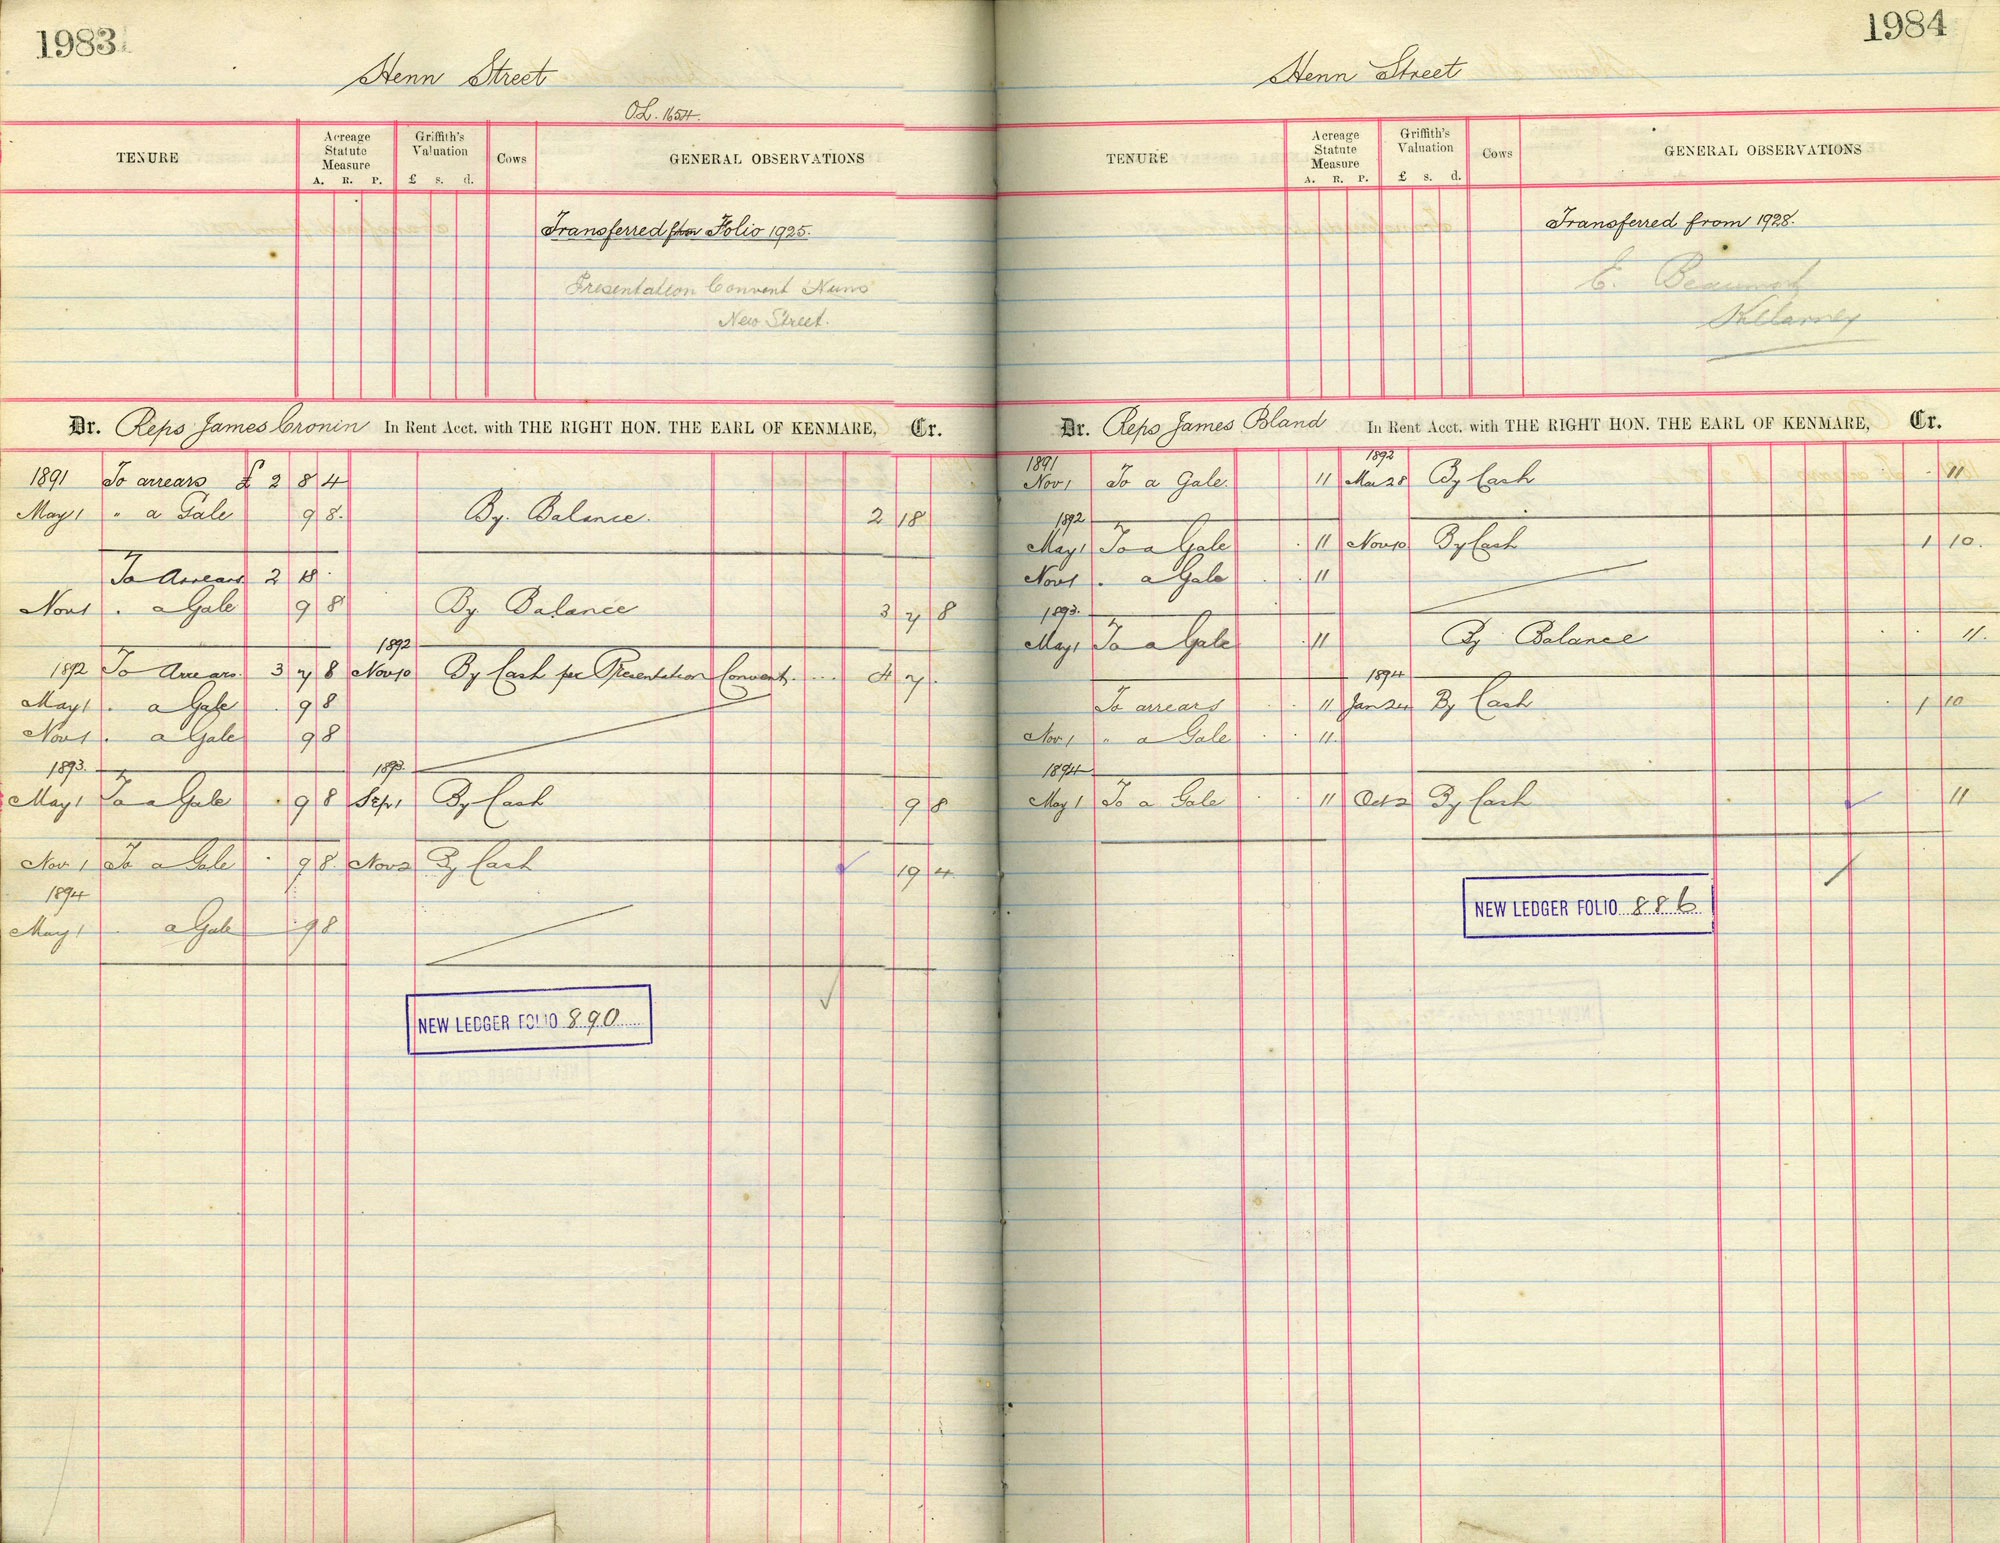 1983
Henn Street
O.L. 1654.
TENURE
Acreage Statute Measure
A. R. P.
Griffith's Valuation
£ s. d.
Cows
GENERAL OBSERVATIONS
Transferred from Folio 1925.
Presentation Convent Nuns
New Street.
Dr. Reps James Cronin In Rent Acct. with THE RIGHT HON. THE EARL OF KENMARE, Cr.
1891 To arrears £ 2 8 4
May 1 " a Gale 9 8. By. Balance. 2 18
To Arrears 2 18 .
Nov 1 . a Gale 9 8 By. Balance 3 7 8
1892
1892 To Arrears. 3 7 8 Nov 10 By Cash per Presentation Convent. ... 4 7 .
May 1 . a Gale . 9 8
Nov 1 . a Gale 9 8
1893. 1893.
May 1 To a Gale . 9 8 Sep 1 By Cash 9 8
Nov 1 To a Gale . 9 8. Nov 2 By Cash 19 4
1894
May 1 . a Gale 9 8
NEW LEDGER FOLIO 890
1984
Henn Street
TENURE
Acreage Statute Measure
A. R. P.
Griffith's Valuation
£ s. d.
Cows
GENERAL OBSERVATIONS
Transferred from 1928.
E. Beaumont
Killarney
Dr. Reps James Bland In Rent Acct. with THE RIGHT HON. THE EARL OF KENMARE, Cr.
1891 1892
Nov 1 To a Gale. 11 Mar 28 By Cash . 11
1892
May 1 To a Gale . 11 Nov 10 By Cash 1 10.
Nov 1 . a Gale . . 11
1893.
May 1 To a Gale . 11 By Balance . . 11.
1894
To arrears . . 11 Jan 24 By Cash . 1 10
Nov 1 " a Gale . . 11.
1894
May 1 To a Gale . . 11 Oct 2 By Cash 11
NEW LEDGER FOLIO 886